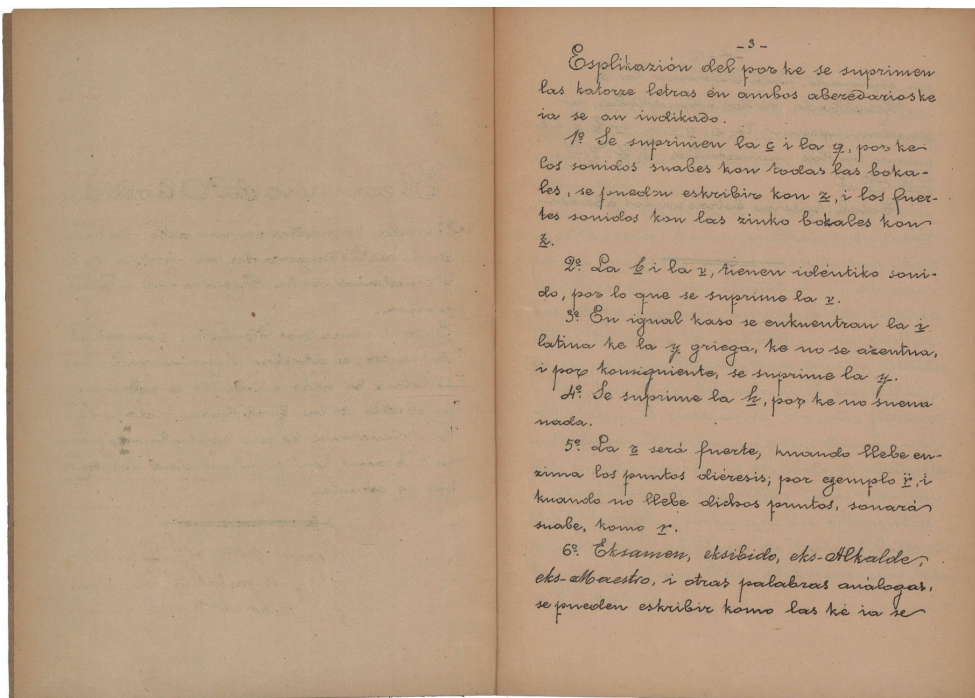 - 3 -
Esplikazión del por ke se suprimen
las katorze letras en ambos abezedarios ke
ia se an indikado.
1º Se suprimen la c i la q, por ke
los sonidos suabes kon todas las boka-
les, se pueden eskribir kon z, i los fuer-
tes sonidos kon las zinko bokales kon
k.
2º La b i la v, tienen idéntiko soni-
do, por lo que se suprime la v.
3º En igual kaso se enkuentran la i
latina ke la y griega, ke no se azentua,
i por konsiguiente, se suprime la y.
4º Se suprime la h, por ke no suena
nada.
5º La r será fuerte, kuando llebe en-
zima los puntos diéresis; por egemplo r̈, i
kuando no llebe dichos puntos, sonará
suabe, komo r.
6º Eksamen, eksibido, eks-Alkalde,
eks-Maestro, i otras palabras análogas,
se pueden eskribir komo las ke ia se